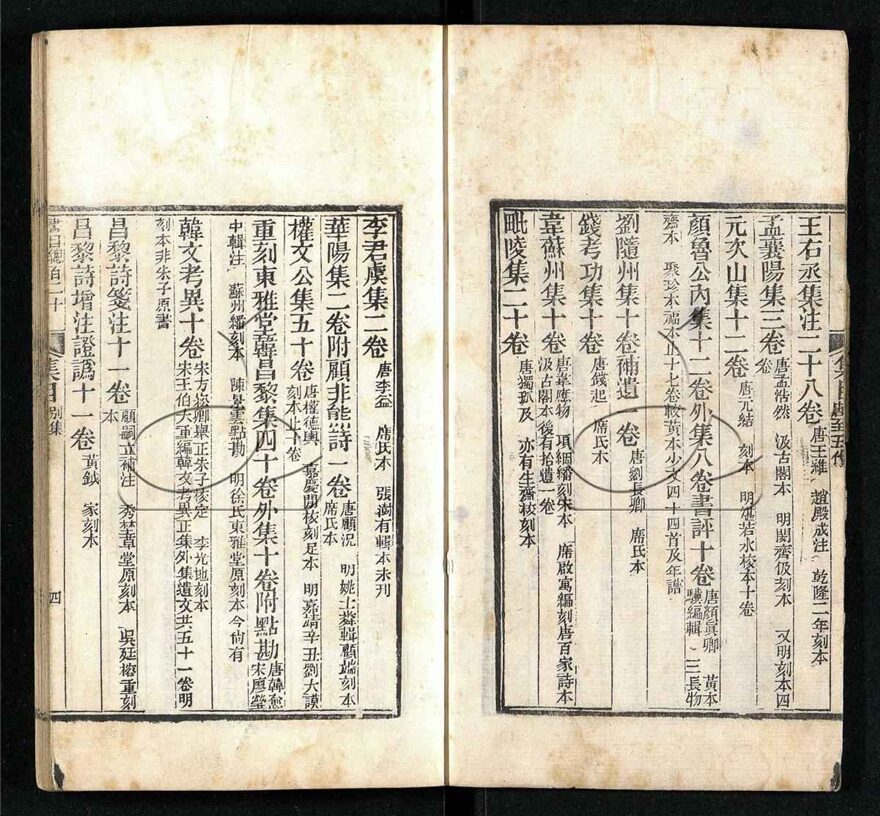 王右丞集注二十八卷 唐王維 趙殿成注 乾隆二年刻本
孟襄陽集三卷 唐孟浩然 汲古閣本 明閔齊伋刻本 又明刻本四卷
元次山集十二卷 唐元結 刻本 明湛若水校本十卷
顏魯公內集十二卷外集八卷書評十卷 唐顏眞卿 黃本驥編輯 三長物
齋本 聚珍本 本止十七卷較黃本少文四十四首及年譜
劉隨州集十卷補遺一卷 唐劉長卿 席氏本
錢考功集十卷 唐錢起 席氏本
韋蘇州集十卷 唐韋應物 項絪繙刻宋本 席啟寓編刻唐百家詩本 汲古閣本後有拾遺一卷
毗陵集二十卷 唐獨孤及 亦有生齋校刻本
李君虞集二卷 唐李益 席氏本 張澍有輯本未刊
華陽集二卷附顧非熊詩一卷 唐顧況 明姚士粦輯顧端刻本 席氏本
權文公集五十卷 唐權德輿 嘉慶間校刻足本 明嘉靖辛丑劉大謨刻本止十卷
重刻東雅堂韓昌黎集四十卷外集十卷附點勘 唐韓愈 宋廖瑩
中輯注 蘇州繙刻本 陳景雲點勘 明徐氏東雅堂原刻本今尚有
韓文考異十卷 宋方崧卿舉正朱子校定 李光地刻本 宋王伯大重編韓文考異正集外集遺文共五十一卷明
刻本非朱子原書
昌黎詩箋注十一卷 顧嗣立補注 秀埜草堂原刻本 吳廷榕重刻本
昌黎詩增注證譌十一卷 黃鉞 家刻本
集目 別集 四